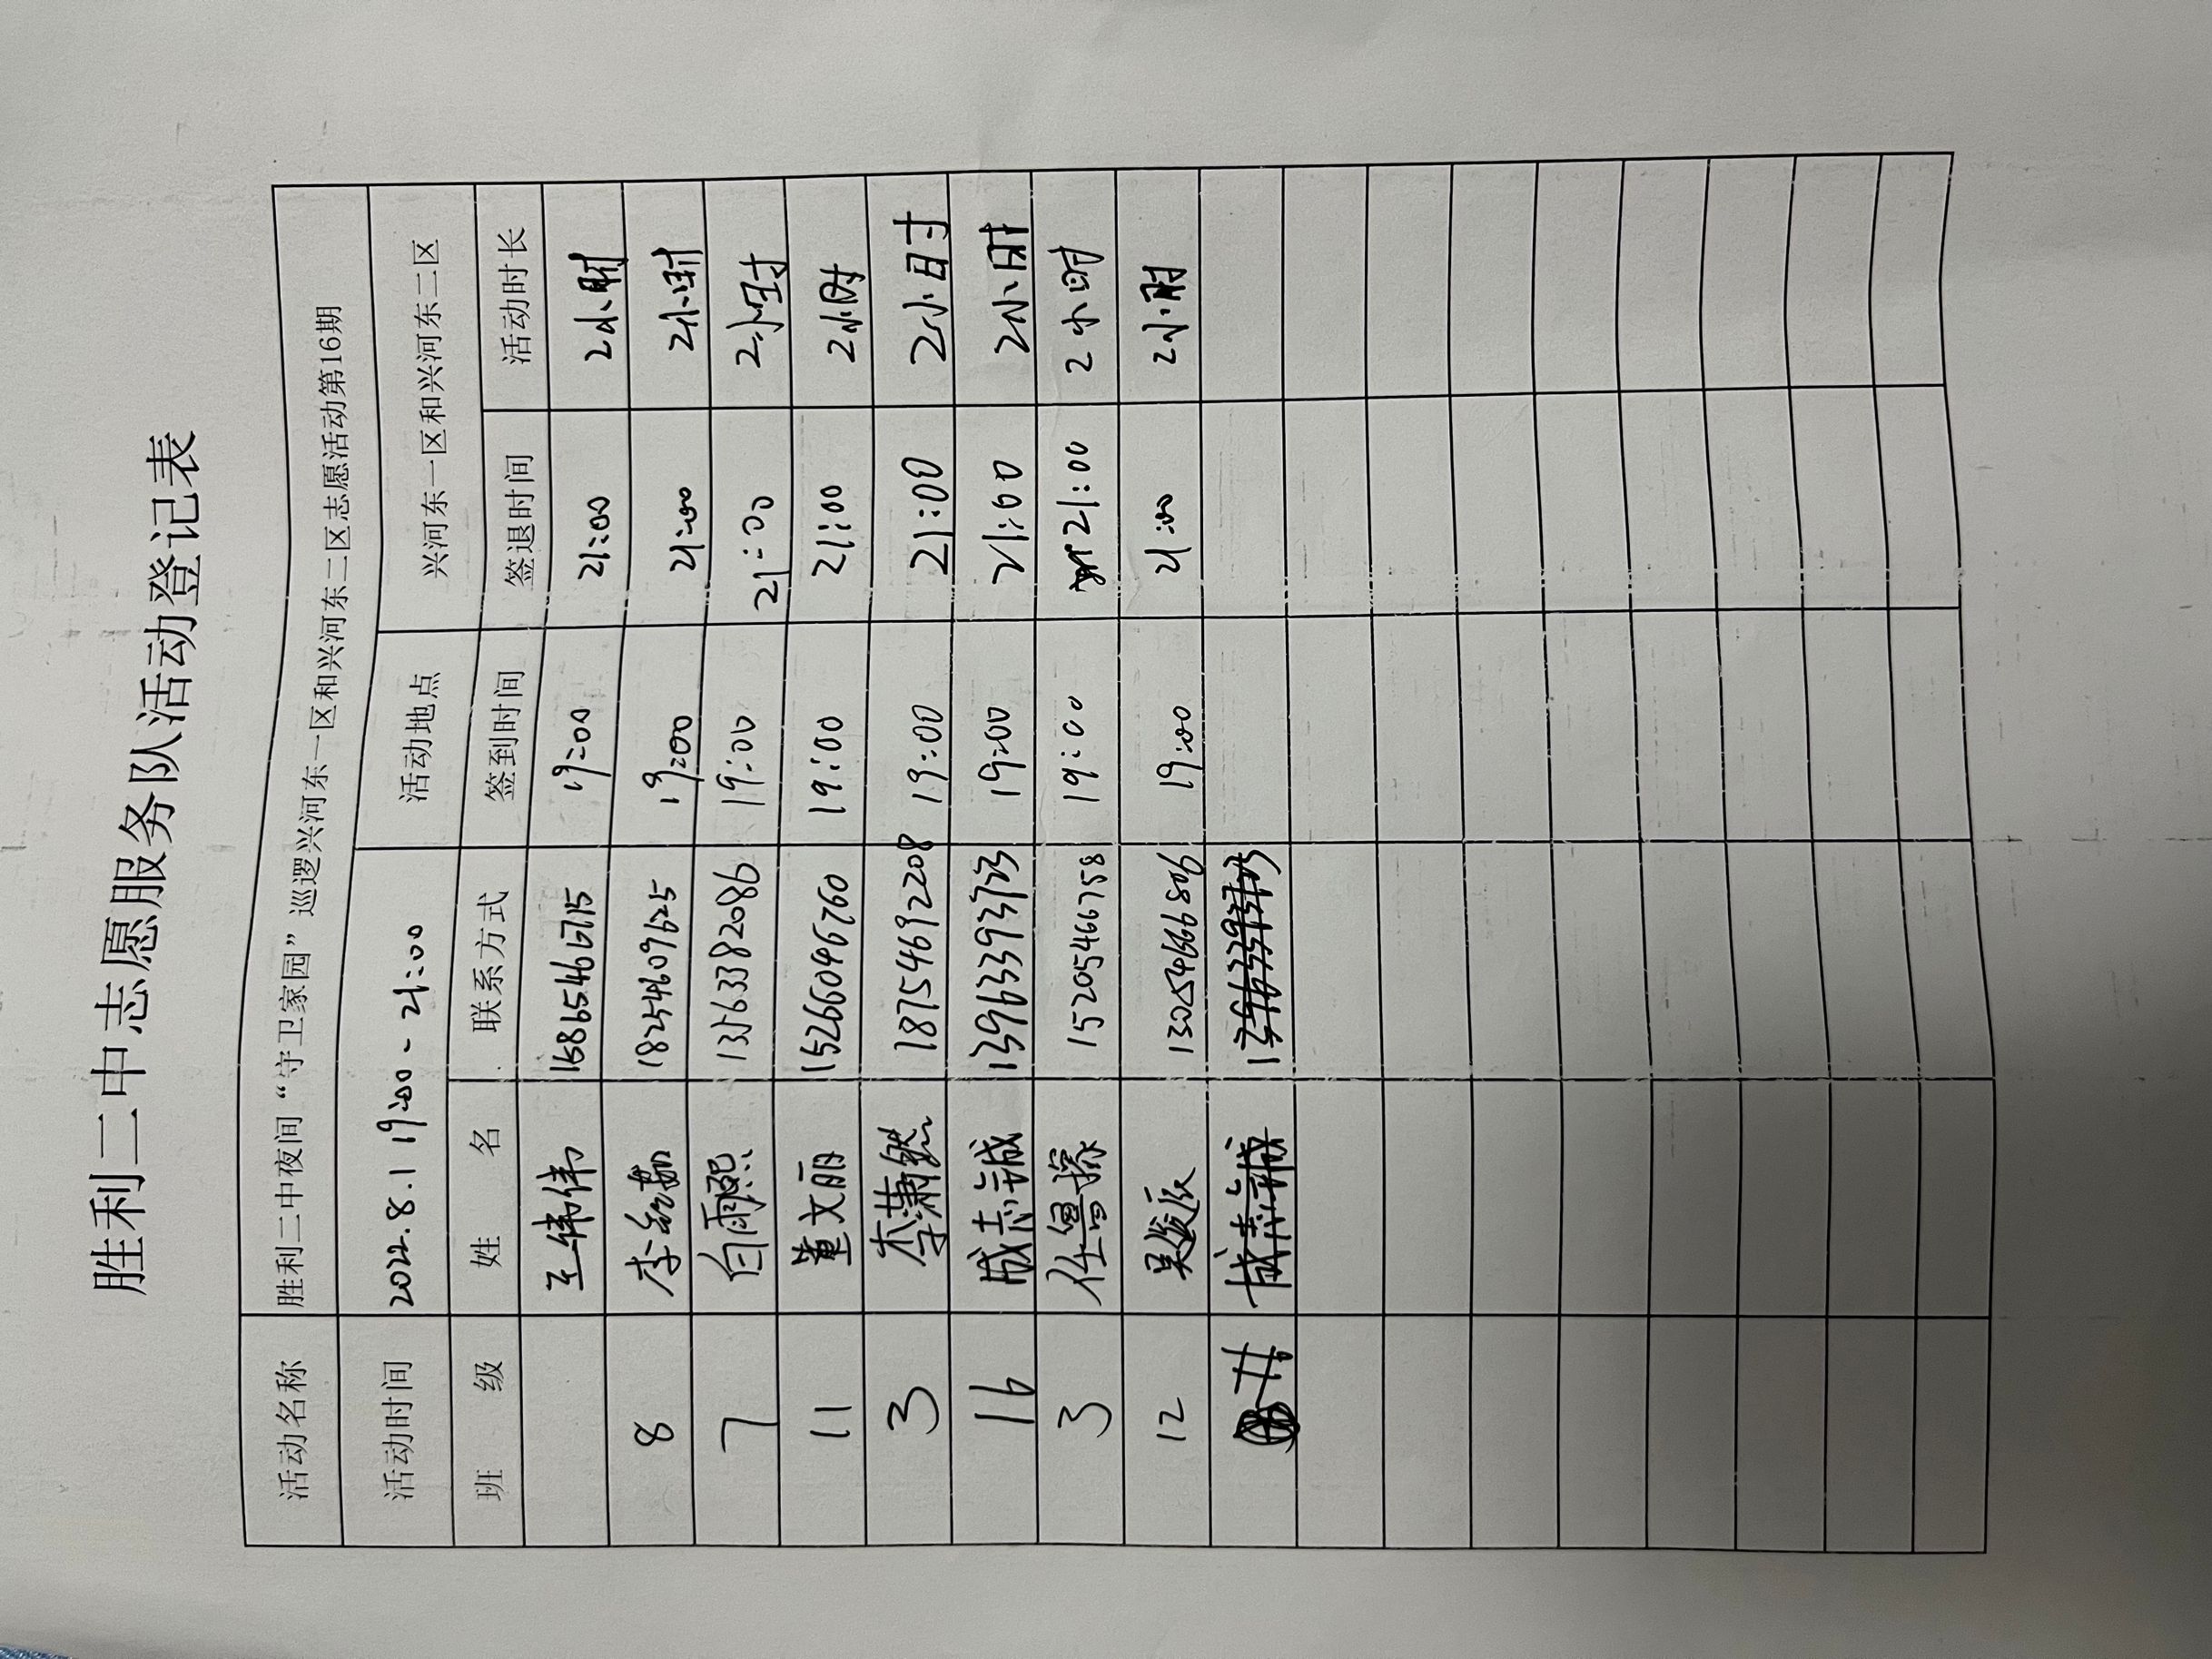 胜利二中志愿服务队活动登记表
活动名称 胜利二中夜间“守卫家园”巡逻兴河东一区和兴河东二区志愿活动第16期
活动时间 2022.8.1 19:00-21:00 活动地点 兴河东一区和兴河东二区
班 级 姓 名 联系方式 签到时间 签退时间 活动时长
王伟伟 19:00 21:00 2小时
8 李 18254609625 19:00 21:00 2小时
7 白雨熙 13563382086 19:00 21:00 2小时
11 董文丽 15266046760 19:00 21:00 2小时
3 李潇然 18754692208 19:00 21:00 2小时
16 成志诚 13963393723 19:00 21:00 2小时
3 任 15205466758 19:00 21:00 2小时
12 吴俊辰 19:00 21:00 2小时
成志诚